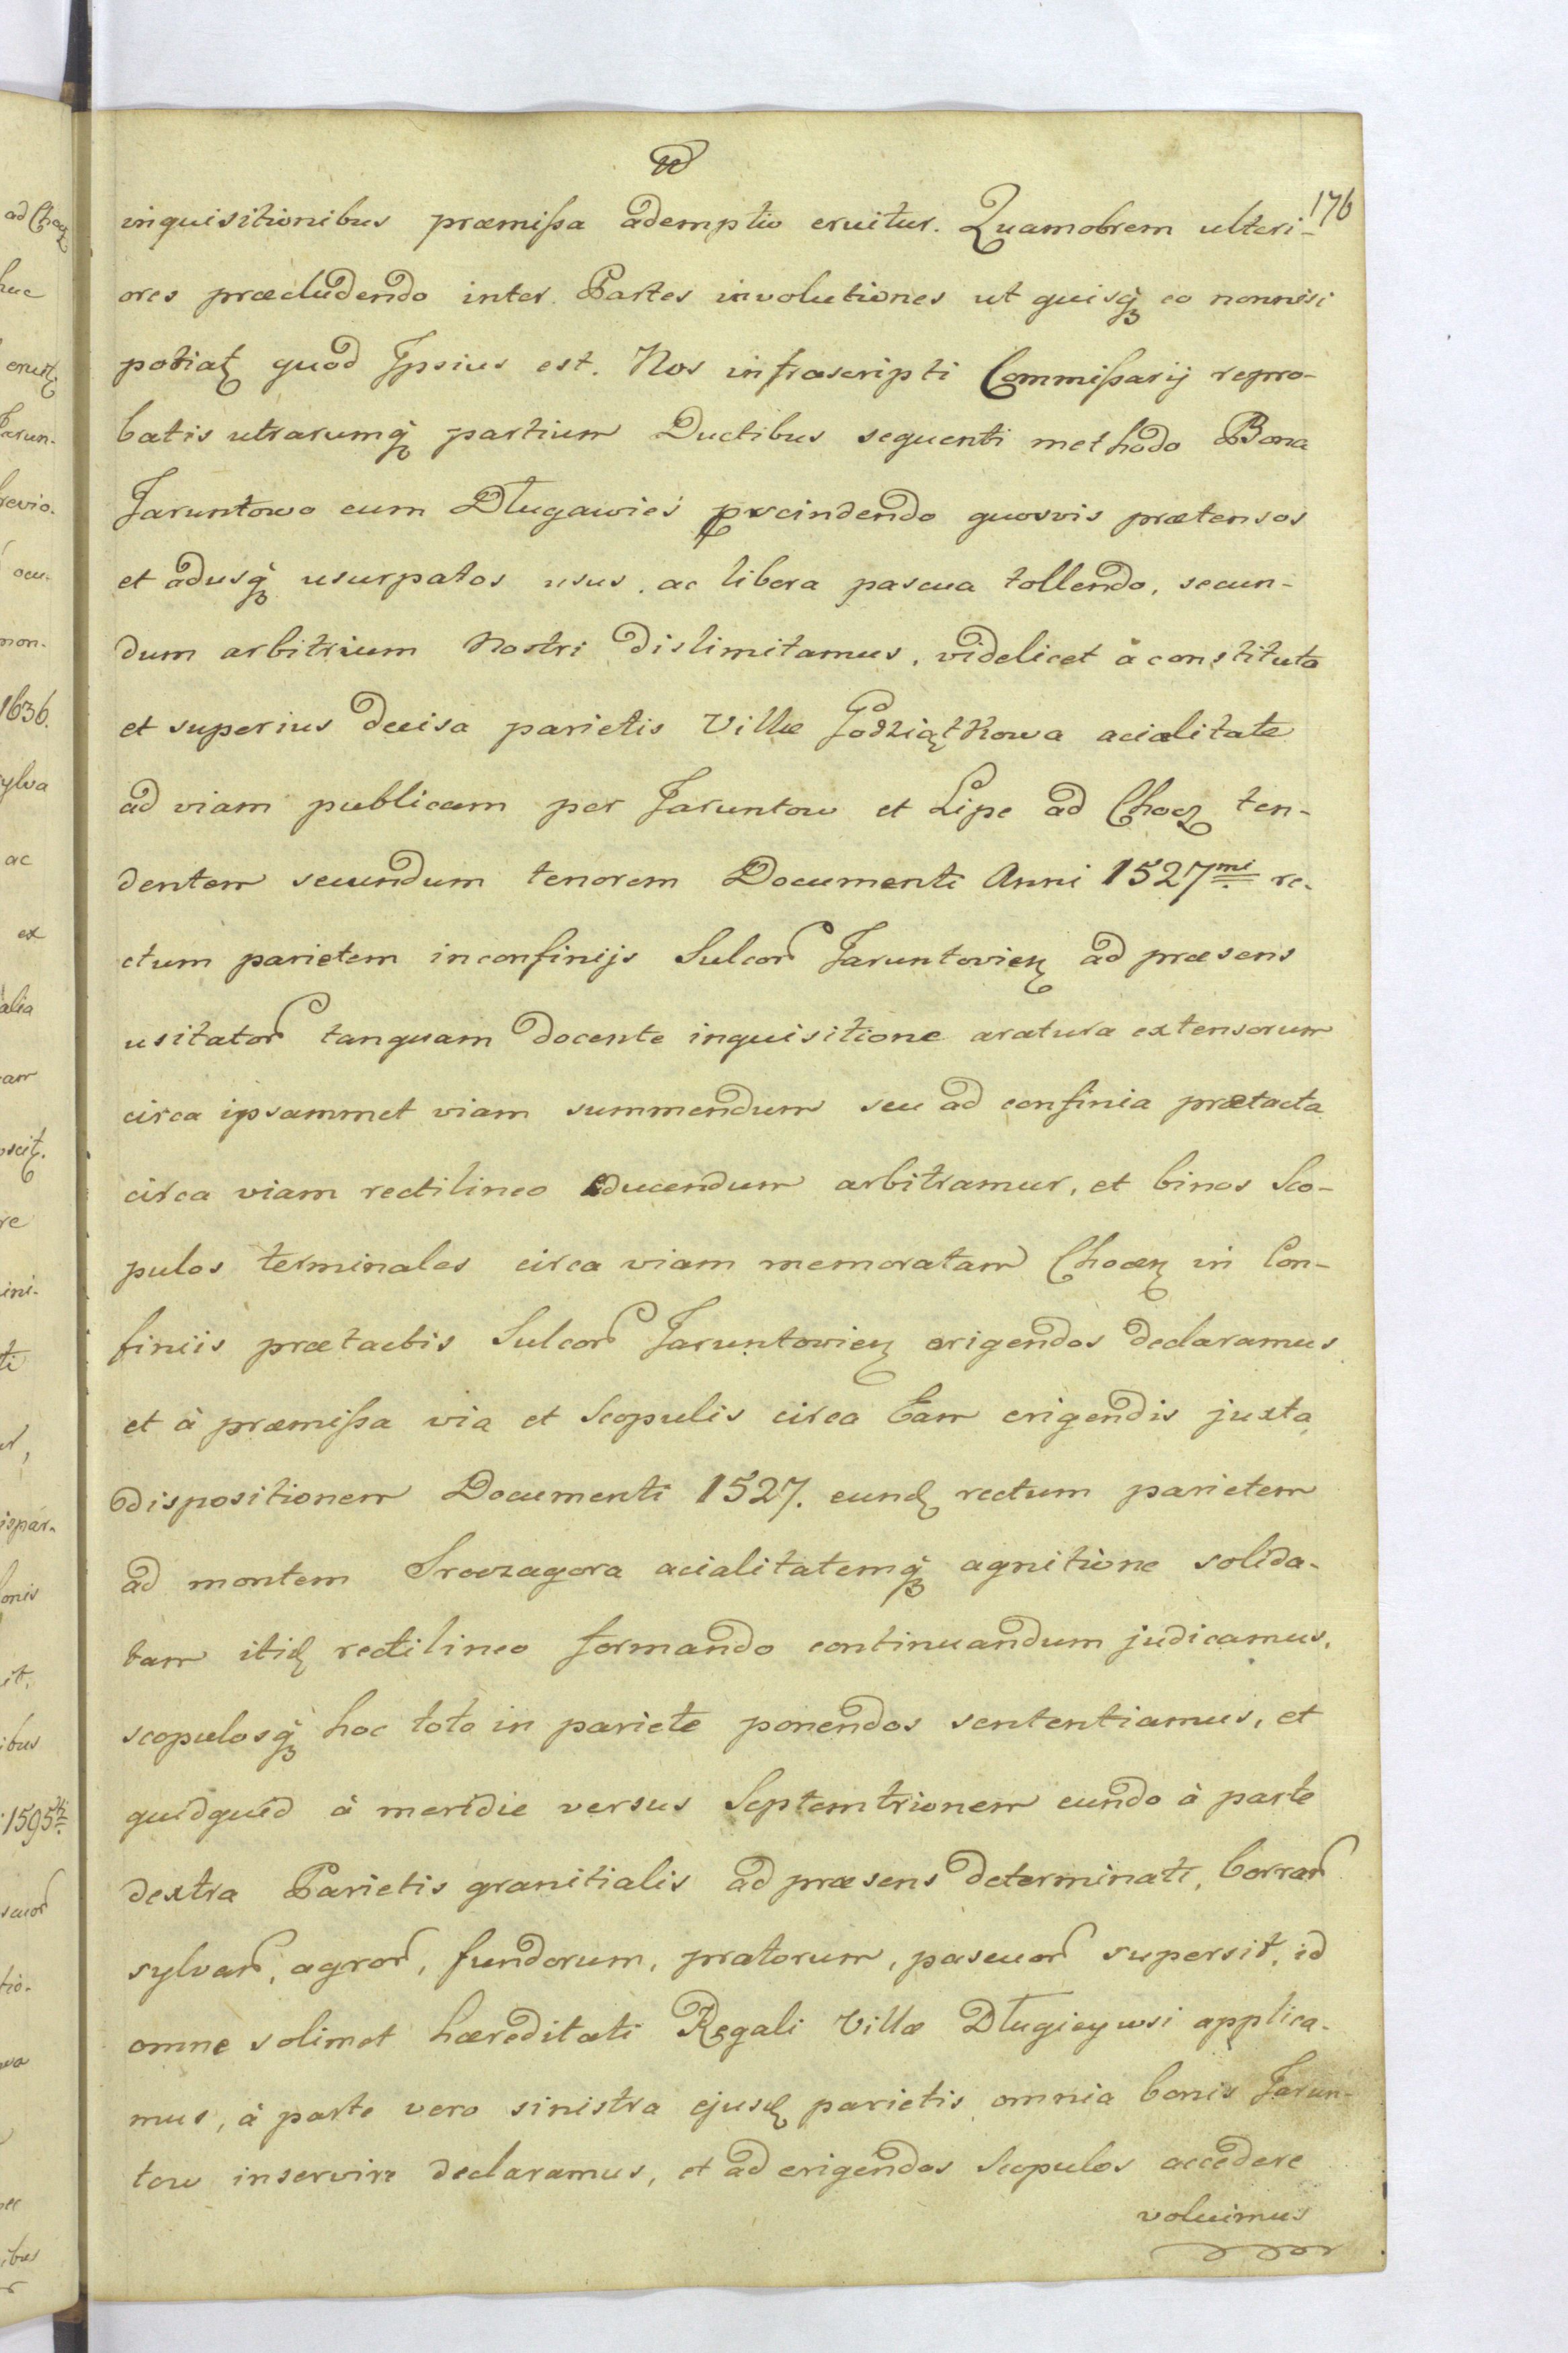 176
inquisitionibus præmissa ademptio eruitur. Quamobrem ulteri-
ores præcludendo inter Partes involutiones ut quisq̃ȝ eo nonnisi
potiatꝫ quod Ipsius est. Nos infrascripti Commissarij repro-
batis utrarumq̃ȝ partium Ductibus sequenti methodo Bona
Jaruntowo cum Długawieś pscindendo quosvis prætensos
et adusq̃ȝ usurpatos usus, ac libera pascua tollendo, secun-
dum arbitrium Nostri dislimitamus, videlicet à constituta
et superius decisa parietis Villæ Godziątkowa acialitate
ad viam publicam per Jaruntow et Lipe ad Chocz ten-
dentem secundum tenorem Documenti Anni 1527mi re-
ctum parietem in confinijs Sulcor Jaruntovien ad præsens
usitator tanquam docente inquisitione aratura extensorum
circa ipsammet viam summendum seu ad confinia prætacta
circa viam rectilineo educendum arbitramur, et binos Sco-
pulos terminales circa viam memoratam Chocen in Con-
finiis prætactis Sulcor Jaruntovien erigendos declaramus
et à præmissa via et Scopulis circa Eam erigendis juxta
dispositionem Documenti 1527. eund rectum parietem
ad montem Sroczagora acialitatemq̃ȝ agnitione solida-
tam itid rectilineo formando continuandum judicamus,
scopulosq̃ȝ hoc toto in pariete ponendos sententiamus, et
quidquid à meridie versus Septemtrionem eundo à parte
dextra Parietis granitialis ad præsens determinati, borrar
sylvar, agror, fundorum, pratorum, pascuor supersit, id
omne solimet hæreditati Regali Villæ Długieywsi applica-
mus, à parte vero sinistra ejusd parietis omnia bonis Jarun-
tow inservire declaramus, et ad erigendos Scopulos accedere
voluimus